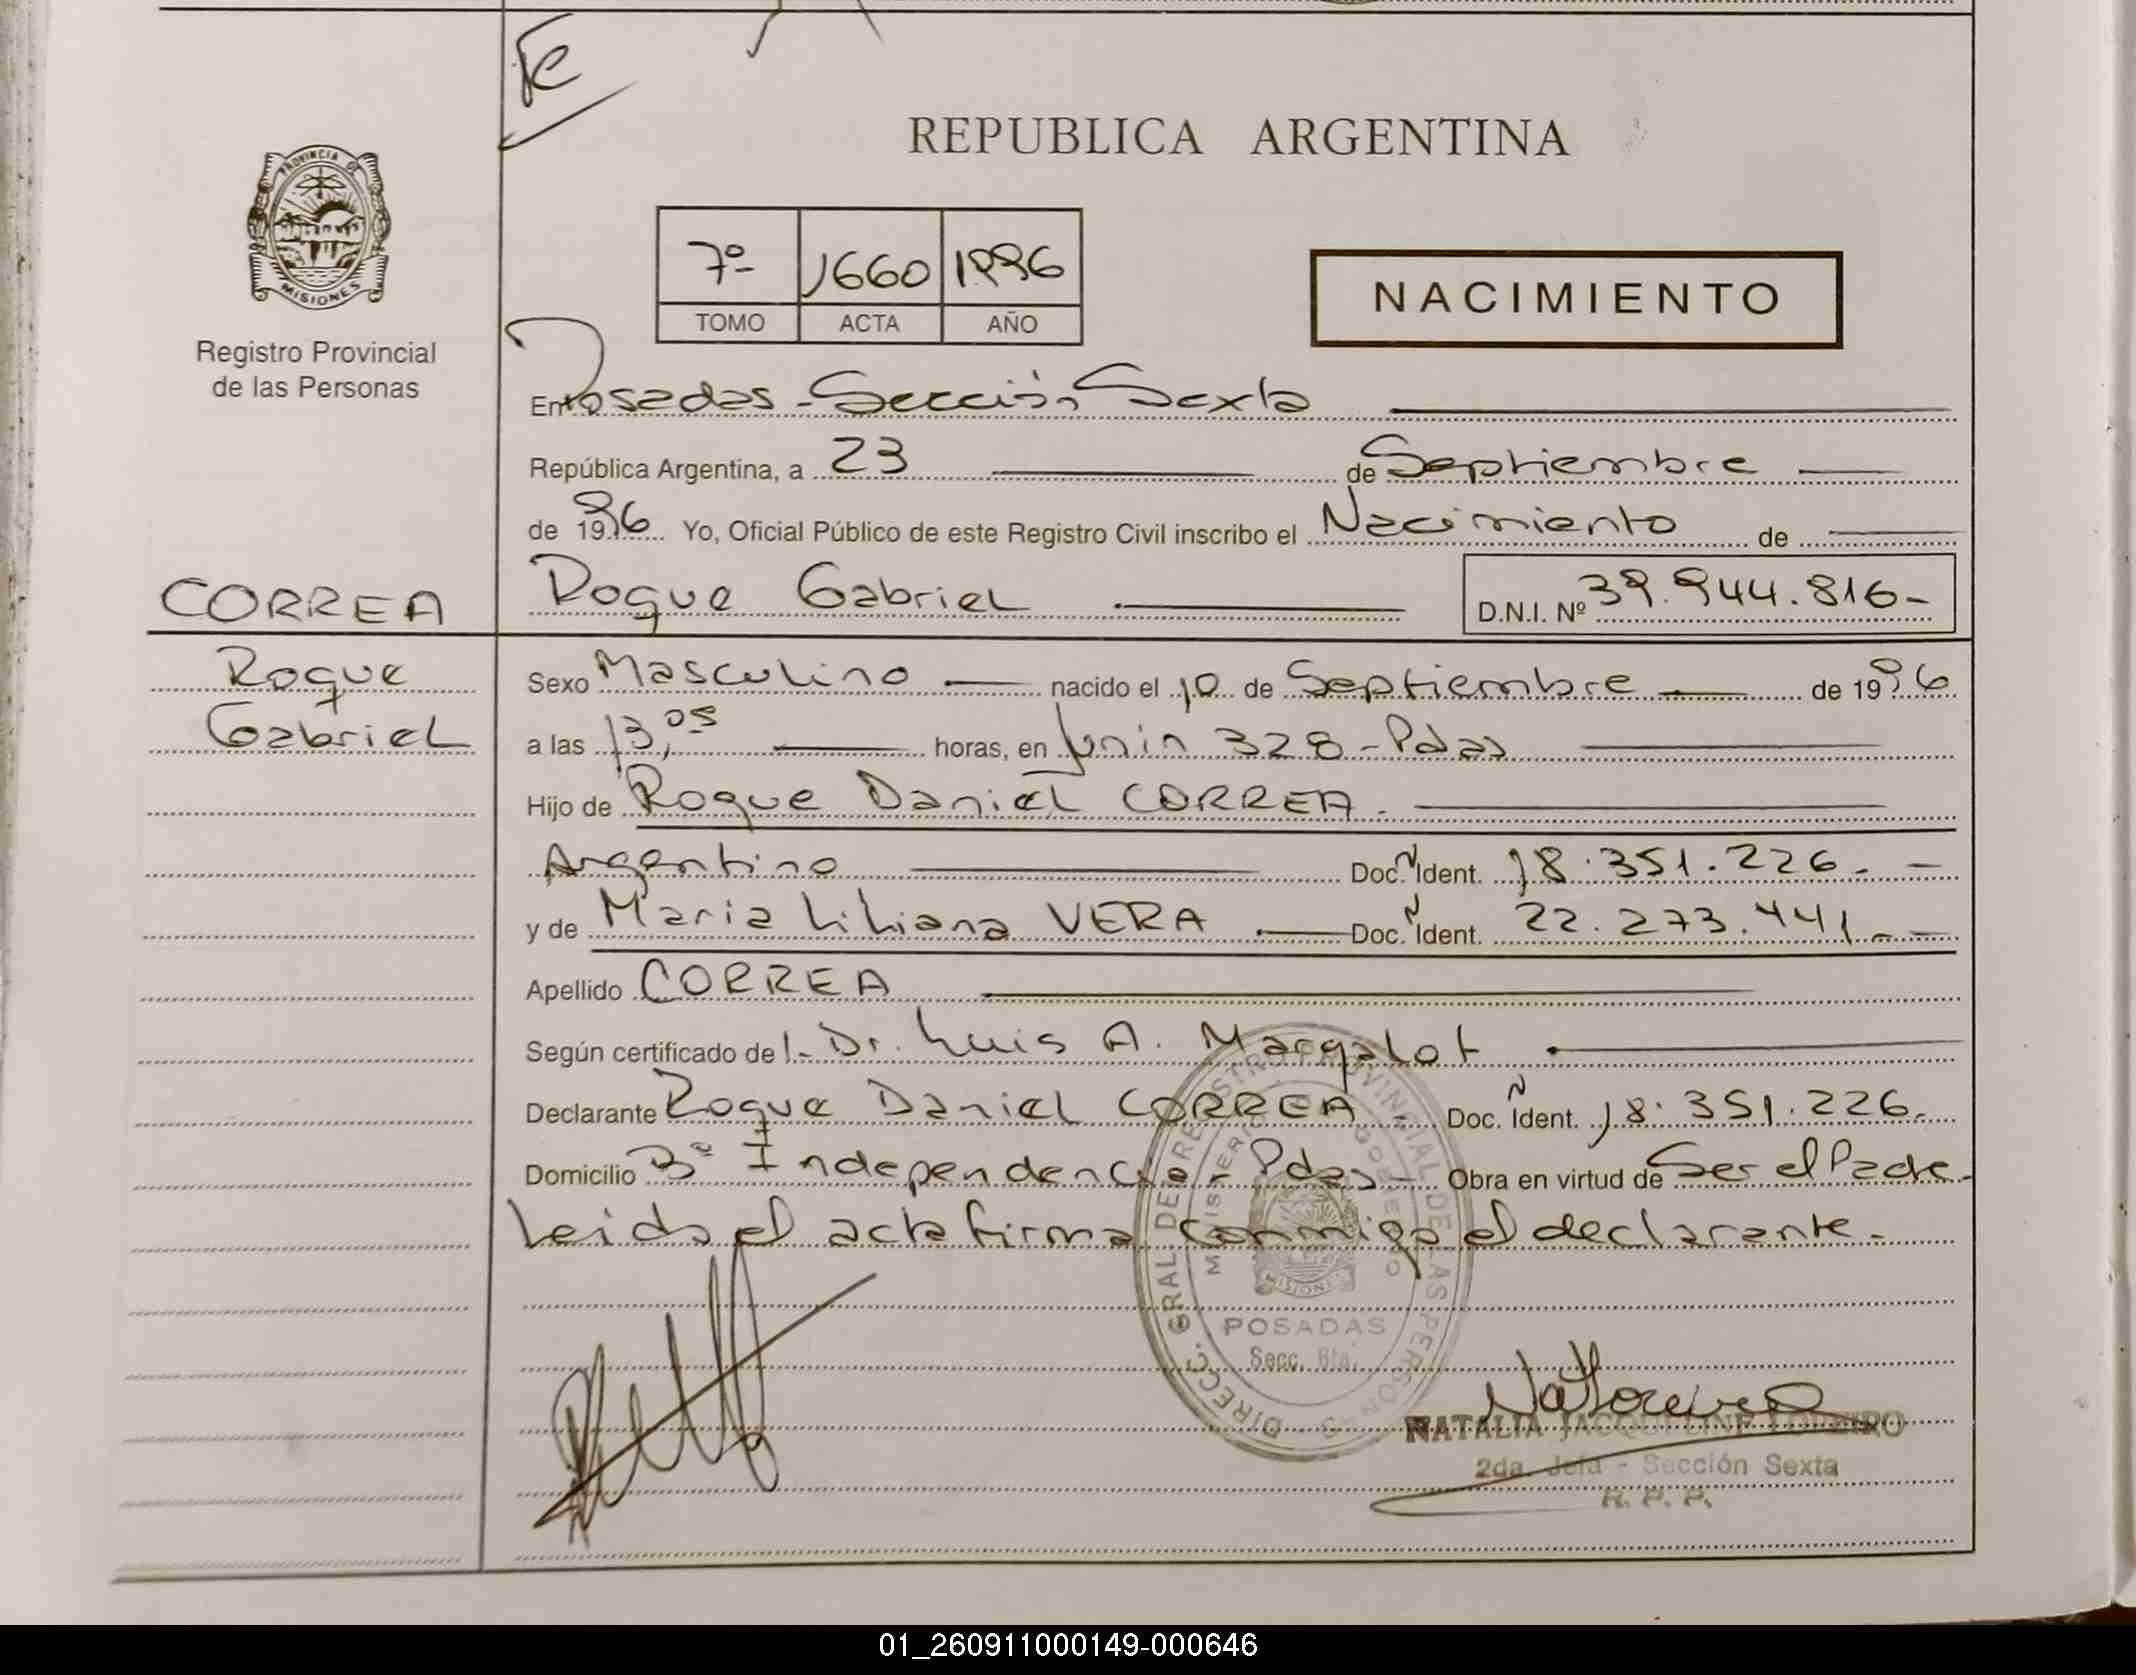 REPUBLICA ARGENTINA
PROVINCIA DE
MISIONES
Registro Provincial
de las Personas
7º 1660 1996
TOMO ACTA AÑO
NACIMIENTO
En Posadas - Sección Sexta
República Argentina, a 23 de Septiembre
de 1996 Yo, Oficial Público de este Registro Civil inscribo el Nacimiento de
CORREA Roque Gabriel D.N.I. Nº 39.944.816-
Roque
Gabriel
Sexo Masculino nacido el 10 de Septiembre de 1996
a las 13,05 horas, en Junin 328 - Pdas
Hijo de Roque Daniel CORREA.
Argentino Doc. Ident. 18.351.226.-
y de Maria Liliana VERA Doc. Ident. 22.273.441.-
Apellido CORREA
Según certificado de l. Dr. Luis A. Margalot
Declarante Roque Daniel CORREA. Doc. Ident. 18.351.226.
Domicilio Bº Independencia - Pdas Obra en virtud de Ser el Padre.
Leida el acta firma conmigo el declarante.
DIRECC. GRAL DE REGISTRO PROVINCIAL DE LAS PERSONAS
MINISTERIO GOBIERNO
MISIONES
POSADAS
Secc. 6ta.
NATALIA JACQUELINE LOREIRO
2da. Jefa - Sección Sexta
R. P. P.
01_260911000149-000646